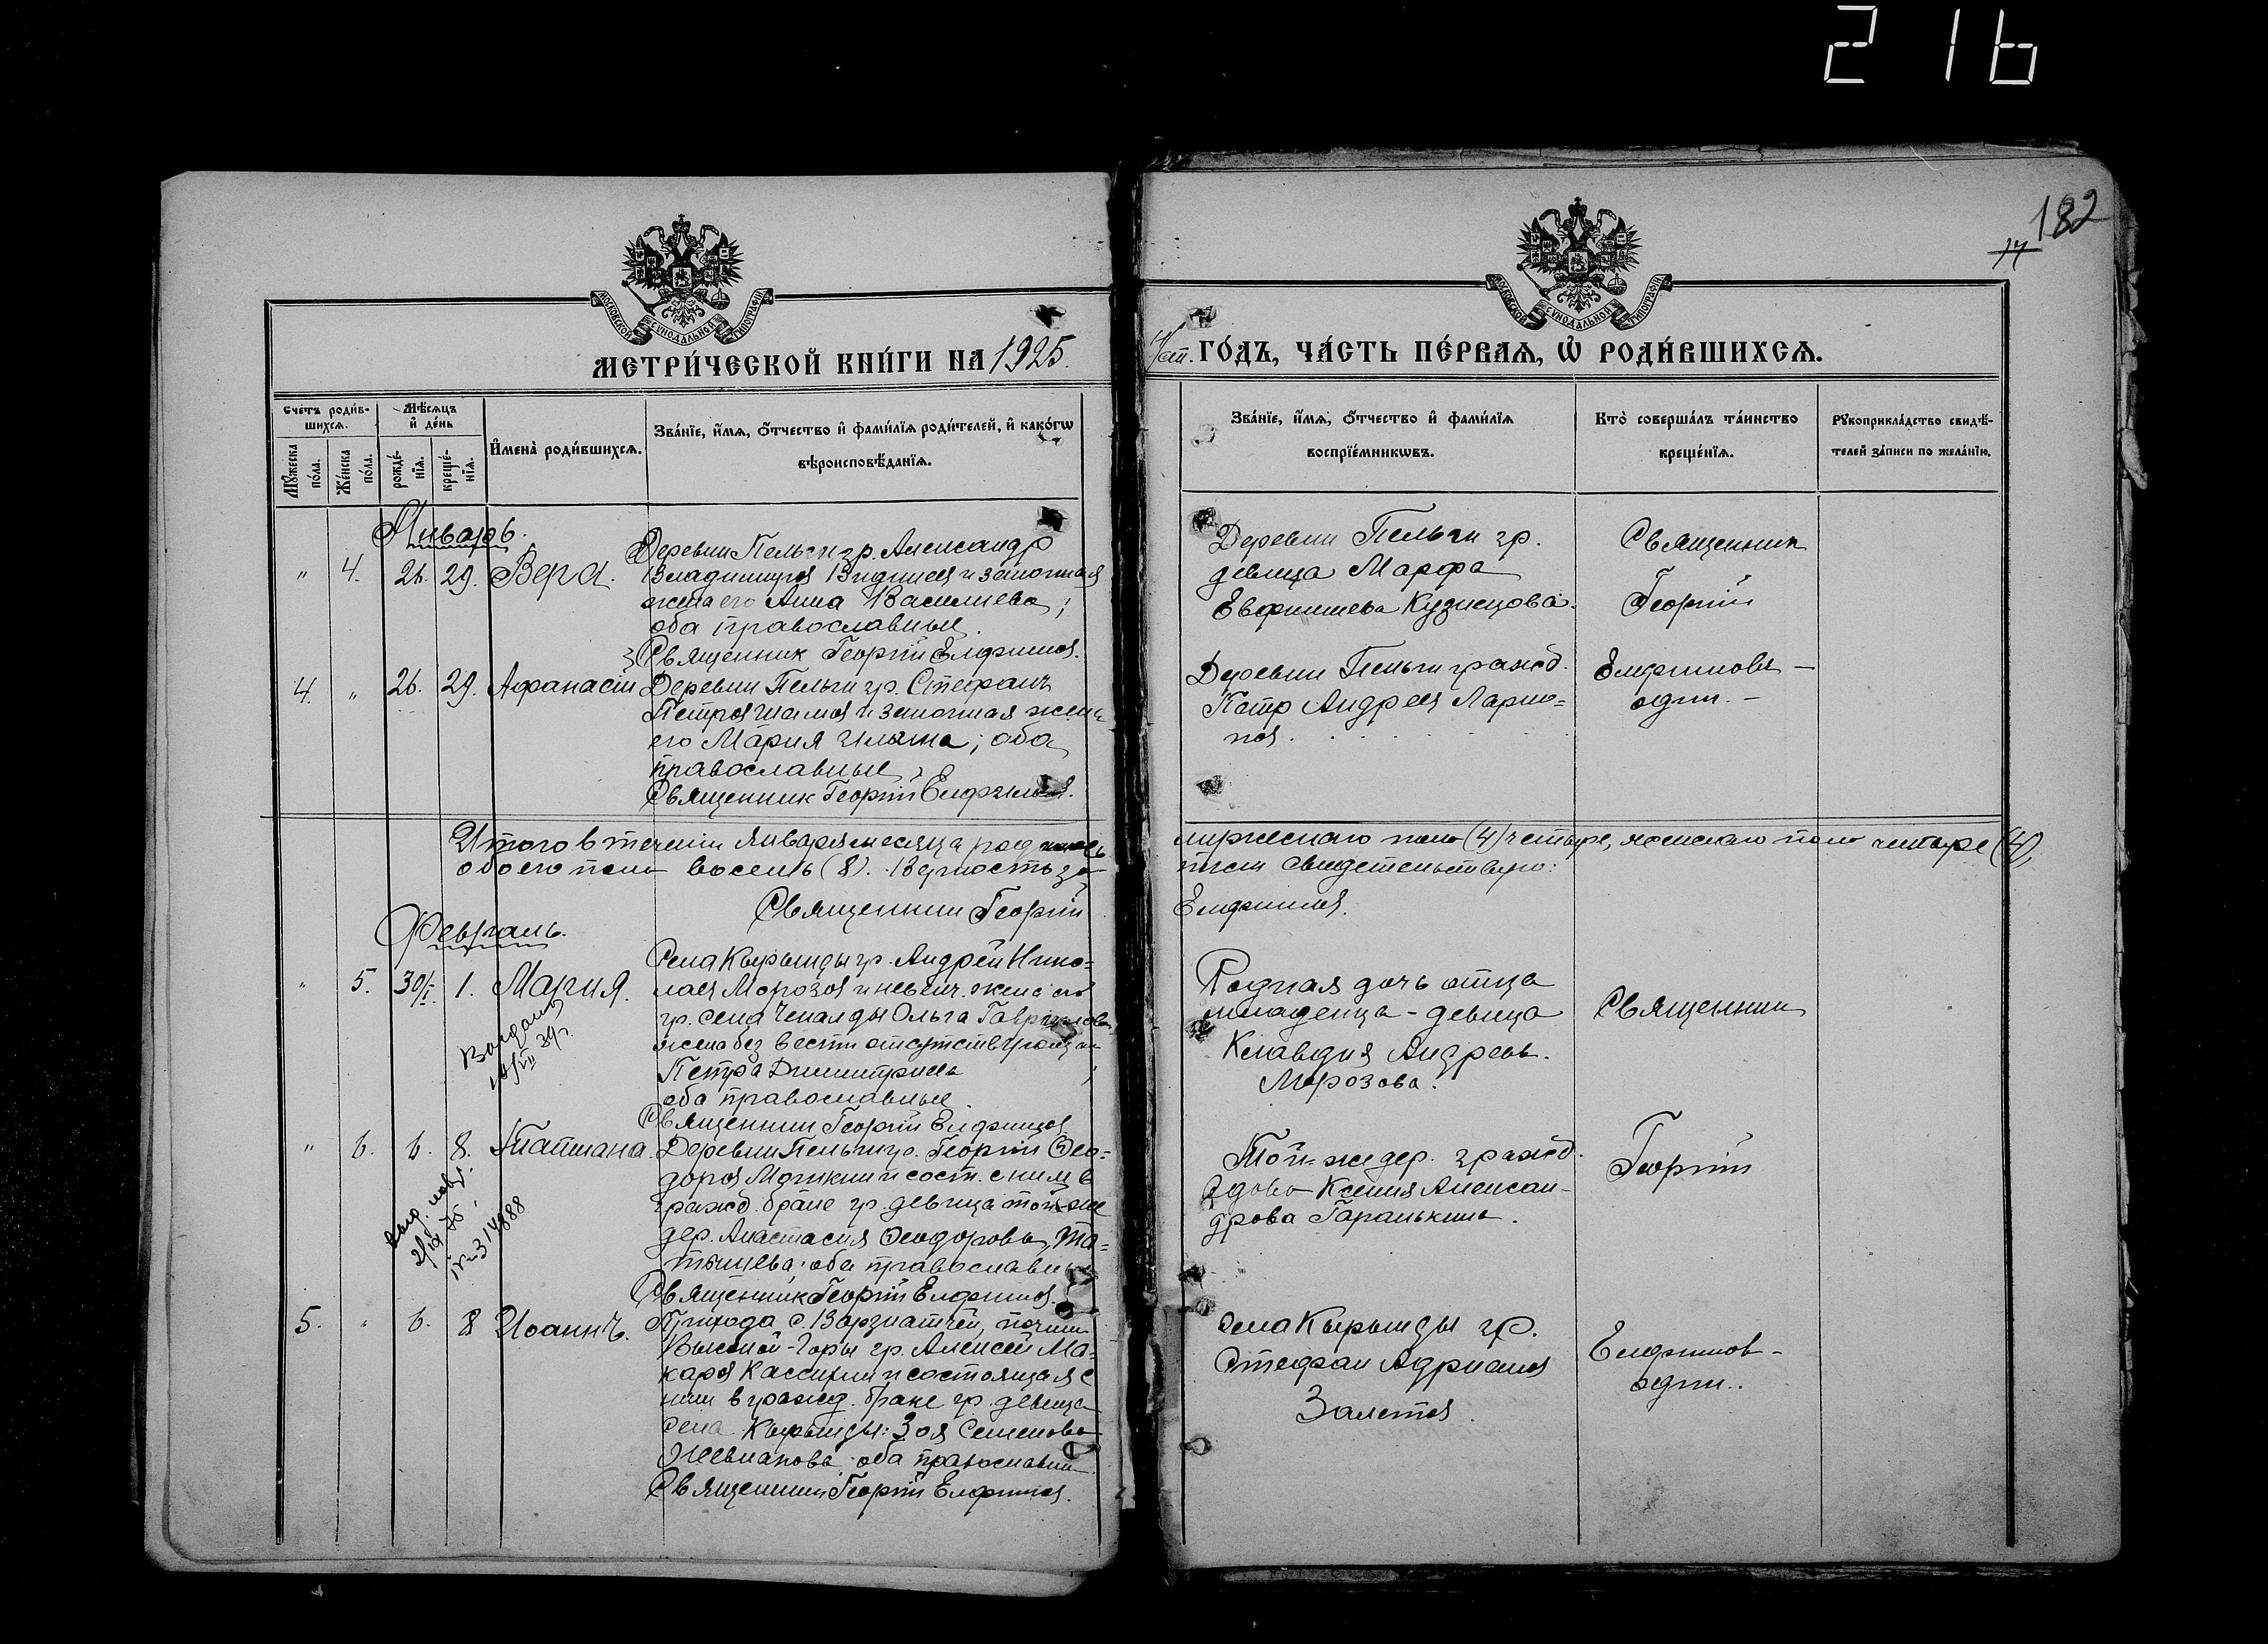 216
182
14
МОСКОВСКОЙ СѴНОДАЛЬНОЙ ТИПОГРАФІИ
МОСКОВСКОЙ СѴНОДАЛЬНОЙ ТИПОГРАФІИ
МЕТРИ́ЧЕСКОЙ КНИ́ГИ НА 1925.
ГО́ДЪ, ЧА́СТЬ ПЕ́РВАѦ, Ѡ҆ РОДИ́ВШИХСѦ.
Сче́тъ роди́в-
шихсѧ.
Мѣ́сѧцъ
и҆ де́нь
Мꙋ́жеска
по́ла.
Же́нска
по́ла.
рожде́-
нїѧ.
креще́-
нїѧ.
И҆мена̀ роди́вшихсѧ.
Зва́нїе, и҆́мѧ, ѻ҆́тчество и҆ фами́лїѧ роди́телей, и҆ како́гѡ
вѣроисповѣ́данїѧ.
Зва́нїе, и҆́мѧ, ѻ҆́тчество и҆ фами́лїѧ
воспрїе́мникѡвъ.
Кто̀ соверша́лъ та́инство
креще́нїѧ.
Рꙋкоприкла́дство свидѣ́-
телей за́писи по жела́нїю.
Январь.
" 4. 26. 29. Вера.
Деревни Пельги гр. Александр
Владимиров и законная
жена его Анна Васильева;
оба православные.
Священник Георгий Елфимов.
Деревни Пельги гр.
девица Марфа
Евфимиева Кузнецова.
Священник
Георгий
4. " 26. 29. Афанасий
Деревни Пельги гр. Стефанъ
Петров и законная жена
его Мария Ильина; оба
православные.
Священник Георгий Елфимов.
Деревни Пельги гражд.
Петр Андреев Ларио=
нов.
Елфимовъ —
один. —
Итого в течении января месяца родилось
обоего пола восемь (8). Верность за-
мужескаго пола (4) четыре, женскаго пола четыре (4),
писи свидетельствую:
Священник Георгий
Елфимов.
Февраль.
" 5. 30/I. 1. Мария.
Села Кырынды гр. Андрей Нико=
лаев Морозов и невенч. жена его
гр. села Чекалды Ольга Гаврилова,
жена без вести отсутствующаго
Петра Димитриева;
оба православные.
Священник Георгий Елфимов
Родная дочь отца
младенца - девица
Клавдия Андреев.
Морозова.
Священник
" 6. 6. 8. Татиана.
Деревни Пельги гр. Георгий Фео-
доров и сост. с ним в
гражд. браке гр. девица той же
дер. Анастасия Феодорова Та=
; оба православные
Священник Георгий Елфимов.
№ 314888
Той-же дер. гражд.
вдова Ксения Алексан-
дрова Гаранькина.
Георгий
5. " 6. 8 Иоаннъ.
Прихода с. Варзиатчей, починка
Высокой-Горы гр. Алексей Ма-
каров Кассихин и состоящая с
ним в гражд. браке гр. девица
села Кырынды: Зоя Семенова
оба православные.
Священник Георгий Елфимов.
Села Кырынды гр.
Стефан Адрианов
Залетов.
Елфимов -
один..